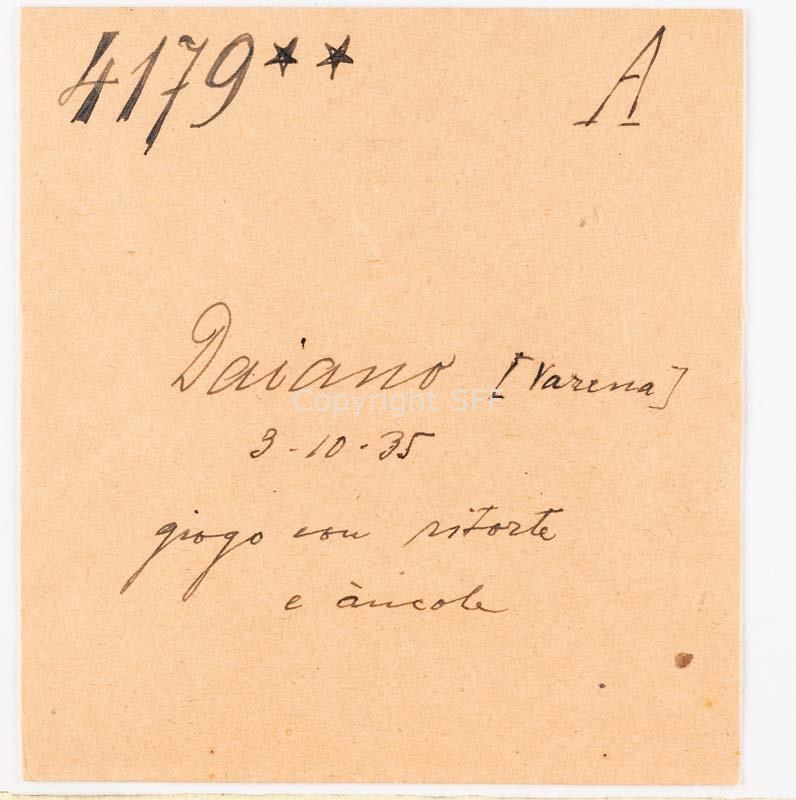 4179** A
Daiano [Varena]
Copyright SFF
3-10-35
giogo con ritorte
e àncole